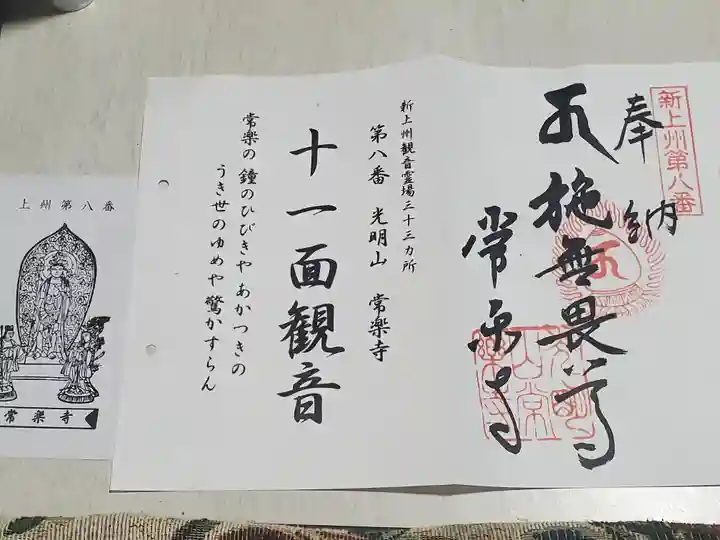 新上州第八番
奉納
施無畏尊
常楽寺
新上州観音霊場三十三カ所
第八番 光明山 常楽寺
十一面観音
常楽の 鐘のひびきや あかつきの
うき世のゆめや 驚かすらん
上州第八番
常楽寺